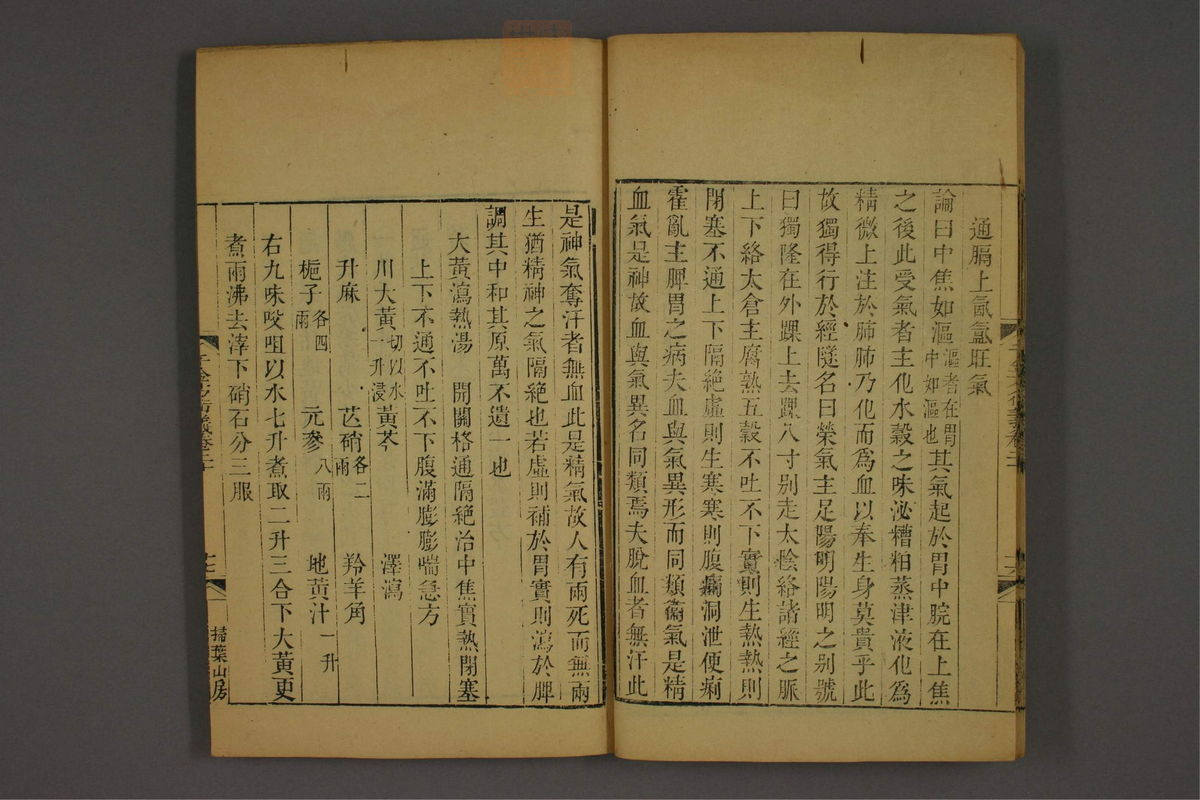 通膈上氤氳旺氣
論曰中焦如漚漚者在胃中如漚也其氣起於胃中脘在上焦
之後此受氣者主化水穀之味泌糟粕蒸津液化為
精微上注於肺肺乃化而為血以奉生身莫貴乎此
故獨得行於經隧名曰榮氣主足陽明陽明之別號
曰獨隆在外踝上去踝八寸別走太陰絡諸經之脈
上下絡太倉主腐熟五穀不吐不下實則生熱熱則
閉塞不通上下隔絕虛則生寒寒則腹痛洞泄便痢
霍亂主脾胃之病夫血與氣異形而同類衞氣是精
血氣是神故血與氣異名同類焉夫脫血者無汗此
是神氣奪汗者無血此是精氣故人有兩死而無兩
生猶精神之氣隔絕也若虛則補於胃實則瀉於脾
調其中和其原萬不遺一也
大黃瀉熱湯　開關格通隔絕治中焦實熱閉塞
上下不通不吐不下腹滿膨膨喘急方
川大黃切以水一升浸　黃芩　澤瀉
升麻　芒硝各二兩　羚羊角
梔子各四兩　元參八兩　地黃汁一升
右九味㕮咀以水七升煮取二升三合下大黃更
煮兩沸去滓下硝石分三服
千金方衍義卷二十
掃葉山房